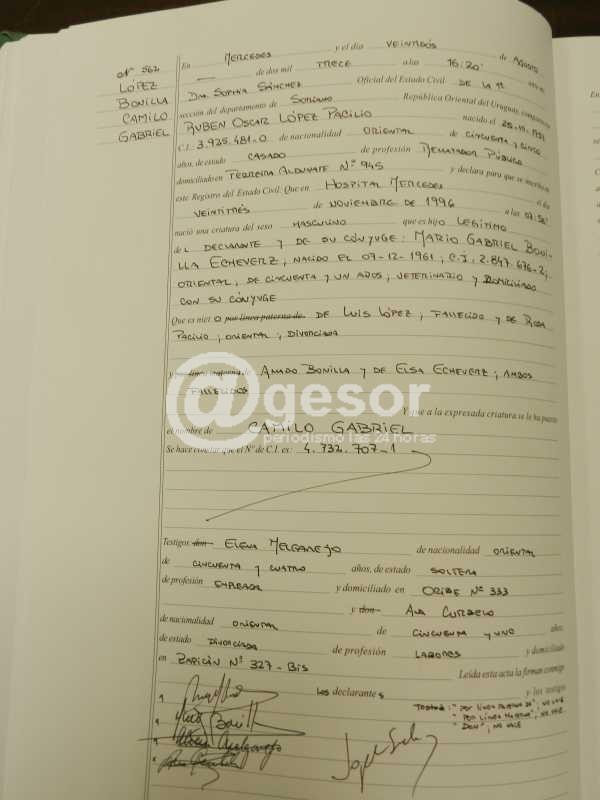 Nº 562
LÓPEZ
BONILLA
CAMILO
GABRIEL
En MERCEDES y el día VEINTIDÓS de AGOSTO
de dos mil TRECE a las 16:20'
Dra. SOFINA SÁNCHEZ Oficial del Estado Civil DE LA 1ª
sección del departamento de SORIANO República Oriental del Uruguay,
RUBEN OSCAR LÓPEZ PACILIO nacido el
C.I. 3.935.481-0 de nacionalidad ORIENTAL de CINCUENTA Y CINCO
años, de estado CASADO de profesión REMATADOR PÚBLICO
domiciliado en FERREIRA ALDUNATE Nº 945 y declara para que se inscriba en
este Registro del Estado Civil: Que en HOSPITAL MERCEDES el día
VEINTITRÉS de NOVIEMBRE DE 1996 a las
nació una criatura del sexo MASCULINO que es hijo LEGÍTIMO
del DECLARANTE Y DE SU CÓNYUGE: MARIO GABRIEL BONI-
LLA ECHEVERZ, NACIDO EL 07-12-1961, C.I. 2.847.676-2,
ORIENTAL, DE CINCUENTA Y UN AÑOS, VETERINARIO Y DOMICILIADO
CON SU CÓNYUGE
Que es niet O por línea paterna de DE LUIS LÓPEZ, FALLECIDO Y DE ROSA
PACILIO, ORIENTAL, DIVORCIADA
y por línea materna de AMADO BONILLA Y DE ELSA ECHEVERZ, AMBOS
FALLECIDOS
@gesor
Y que a la expresada criatura se le ha puesto
periodismo las 24 horas
el nombre de CAMILO GABRIEL
Se hace constar que el Nº de C.I. es: 4.732.707-1
Testigos don ELENA MELGAREJO de nacionalidad ORIENTAL
de CINCUENTA Y CUATRO años, de estado SOLTERA
de profesión EMPLEADA y domiciliado en ORIBE Nº 333
y don ANA CURBELO
de nacionalidad ORIENTAL de CINCUENTA Y UNO años
de estado DIVORCIADA de profesión LABORES y domiciliado
en ZAPICÁN Nº 327-BIS
Leída esta acta la firman conmigo
los declarantes y los testigo
Testado: "por línea paterna de"; NO VALE
"POR LÍNEA MATERNA", NO VALE.
"DON"; NO VALE